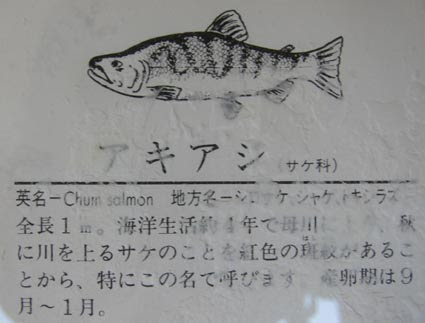 アキアシ (サケ科)
英名ーChum salmon 地方名ーシロサケ、シャケ、トキシラズ
全長1m。海洋生活約4年で母川に 秋
に川を上るサケのことを紅色の斑紋があるこ
とから、特にこの名で呼びます 産卵期は9
月～1月。